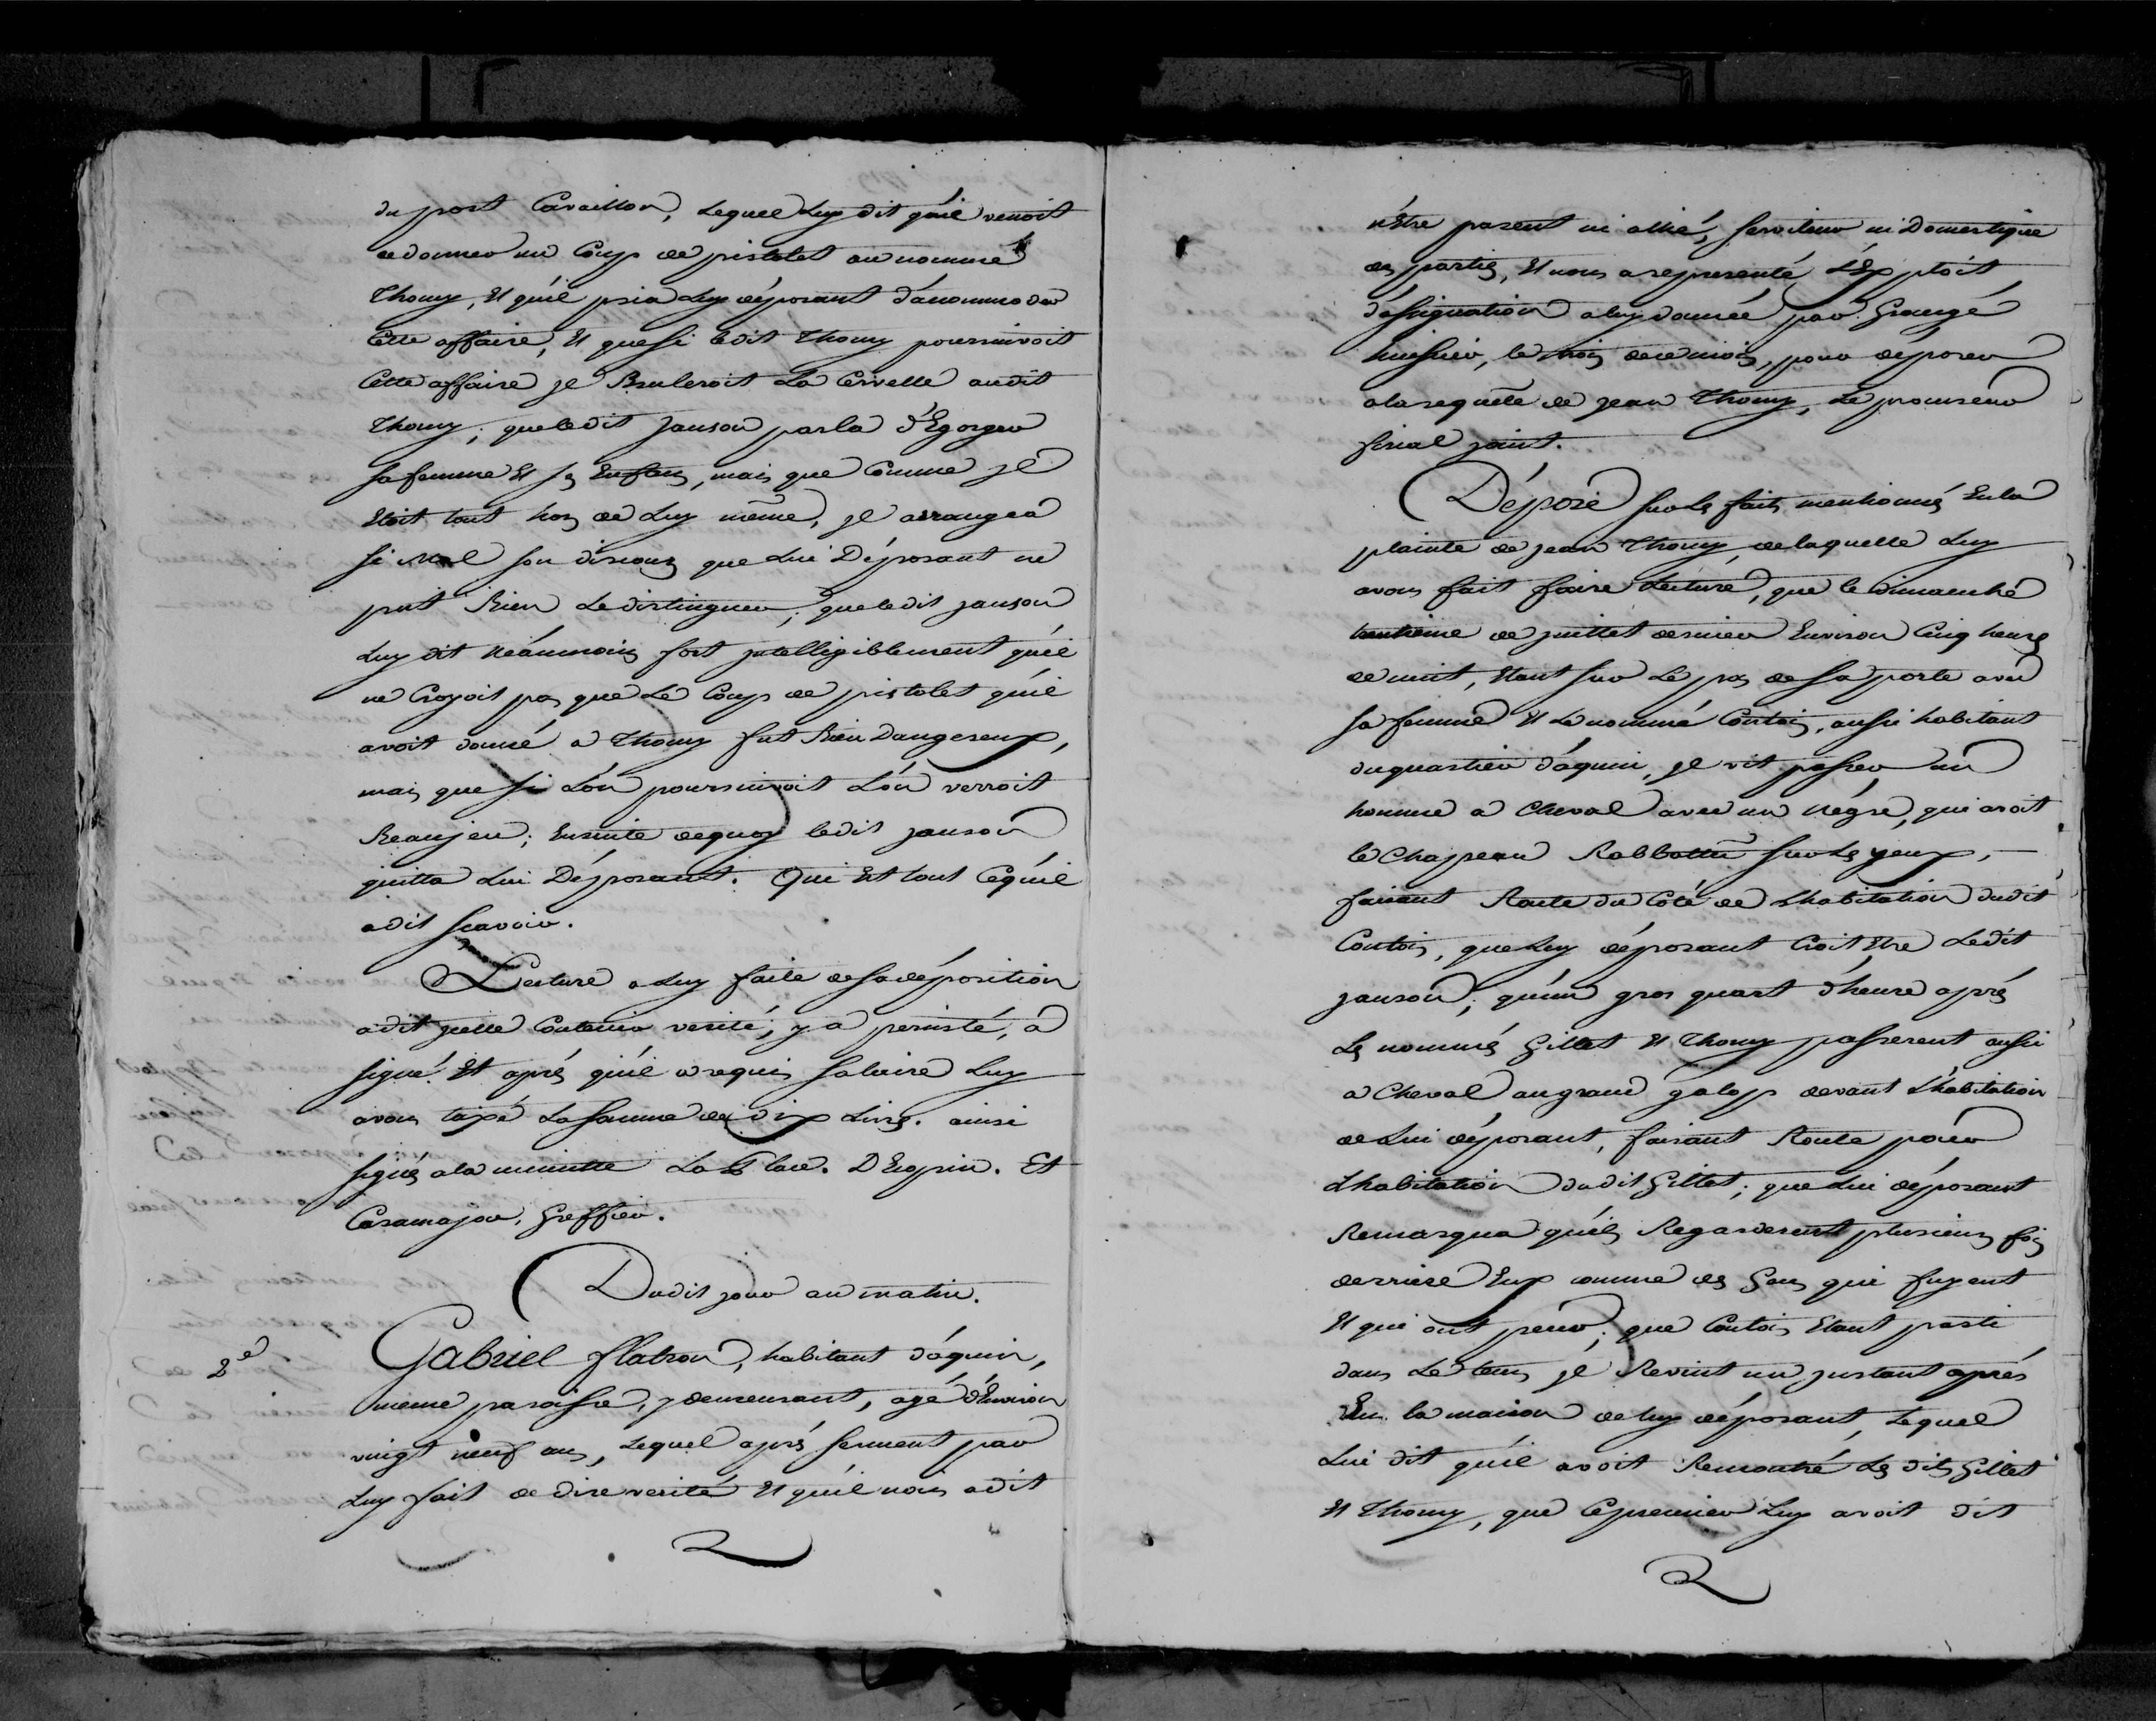 du port Cavaillon, Lequel Luy dit qu'il venoit
de donner un Coup de pistolet au nommé
Thomy, Et qu'il pria Luy déposant d'accommoder
Cette affaire, Et que si ledit Thomy poursuivoit
Cette affaire jl Bruleroit La Cervelle audit
Thomy; que ledit Janson parla d'Egorger
sa femme Et ses Enfans, mais que Comme jl
Etoit tout hors de Luy même, jl arrangea
si mal son discours que Lui Déposant ne
put Rien Le distinguer; que ledit janson
Luy dit néanmoins fort jntelligiblement qu'il
ne Croyoit pas que Le Coup de pistolet qu'il
avoit donné a Thomy fut Bien Dangereux,
mais que si L'on poursuivoit L'on verroit
Beaujeu; Ensuite de quoy ledit janson
quitta Lui Déposant. Qui Est tout Cequ'il
a dit scavoir.
Lecture a Luy faite de sa déposition
a dit jcelle Contenir verité, y a persisté, a
signé. Et aprés qu'il a requis salaire Luy
avons taxé La somme de dix Livres. ainsi
signés a la minutte LaPlace. D'Espin. Et
Casamajor, Greffier.
Dudit jour au matin.
2e Gabriel flatron, habitant d'aquin,
meme paroisse, y demeurant, agé d'Environ
vingt neuf ans, Lequel aprés serment par
Luy fait de dire verité Et qu'il nous a dit
n'être parent ni allié, serviteur ni Domestique
des parties, Et nous a representé L'Exploit
d'assignation a luy donnée par Grangé
huissier, le trois de ce mois, pour déposer
a la requête de jean Thomy, Le procureur
fiscal joint.
Dépose sur Les faits mentionnés En la
plainte de jean Thomy, de laquelle Luy
avons fait faire Lecture, que le dimanche
huitième de juillet dernier Environ Cinq heures
de nuit, Etant sur Le pas de sa porte avec
sa femme Et Le nommé Contois, aussi habitant
du quartier d'aquin, jl vit passer un
homme a Cheval avec un négre, qui avoit
le Chapeau Rabbattu sur Les yeux,
faisant Route du Côté de L'habitation dudit
Contois, que Luy déposant Croit Etre Ledit
janson; qu'un gros quart d'heure aprés
Les nommés Gillet Et Thomy passerent aussi
a Cheval au grand galop devant L'habitation
de Lui déposant, faisant Route pour
L'habitation dudit Gillet; que Lui déposant
Remarqua qu'ils Regarderent plusieurs fois
derriere Eux comme des Gens qui fuyent
Et qui ont peur; que Contois Etant parti
dans Le tems jl Revint un jnstant aprés
En la maison de Luy déposant, Lequel
Lui dit qu'il avoit Rencontré Les dits Gillet
Et Thomy, que Ce premier Luy avoit dit